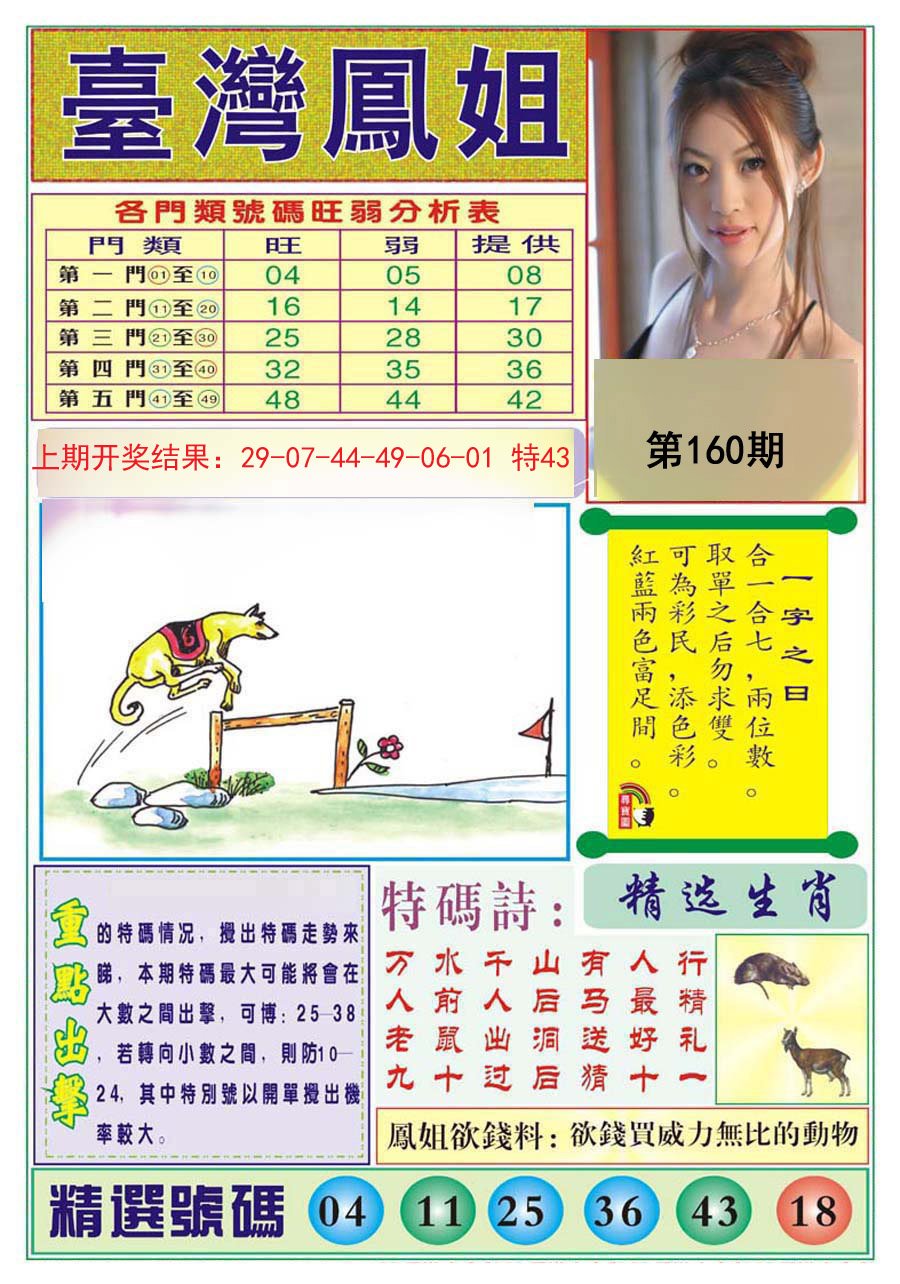 臺灣鳳姐
各門類號碼旺弱分析表
門類 旺 弱 提供
第一門01至10 04 05 08
第二門11至20 16 14 17
第三門21至30 25 28 30
第四門31至40 32 35 36
第五門41至49 48 44 42
上期开奖结果：29-07-44-49-06-01 特43
第160期
一字之曰
合一合七，兩位數。
取單之后勿求雙。
可為彩民，添色彩。
紅藍兩色富足間。
尋寶圖
重點出擊
的特碼情况，攪出特碼走勢來
睇，本期特碼最大可能將會在
大數之間出擊，可博：25—38
，若轉向小數之間，則防10—
24，其中特別號以開單攪出機
率較大。
特碼詩：
万水千山有人行
人前人后马最精
老鼠出洞送好礼
九十过后猜十一
精选生肖
鳳姐欲錢料：欲錢買威力無比的動物
精選號碼 04 11 25 36 43 18